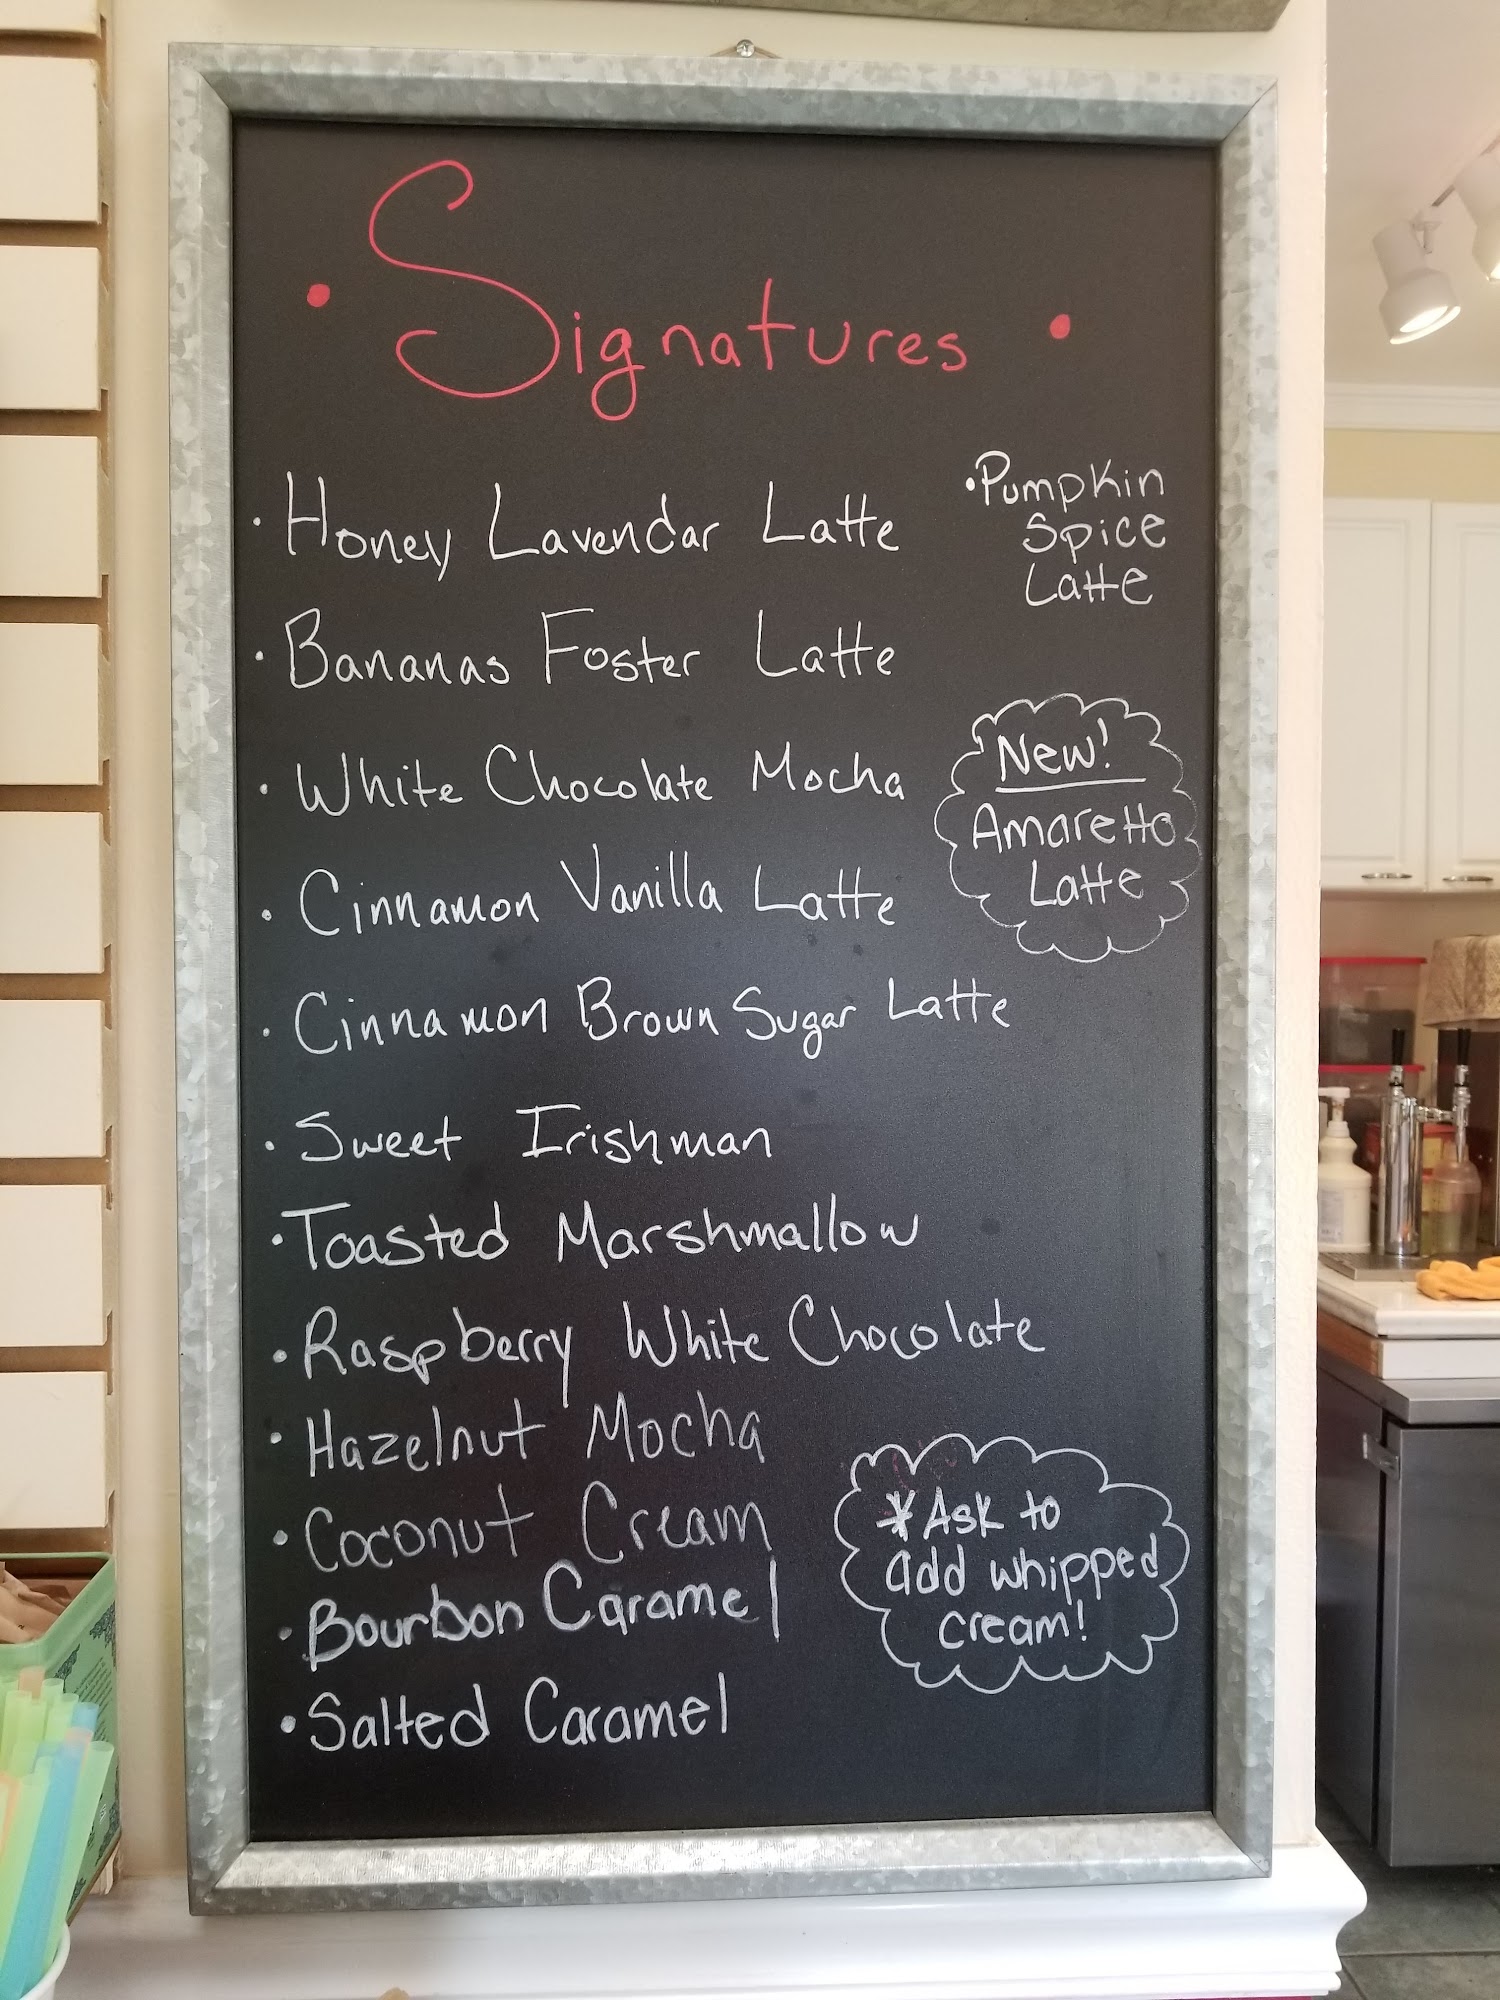 • Signatures •
• Honey Lavendar Latte
• Bananas Foster Latte
• White Chocolate Mocha
• Cinnamon Vanilla Latte
• Cinnamon Brown Sugar Latte
• Sweet Irishman
• Toasted Marshmallow
• Raspberry White Chocolate
• Hazelnut Mocha
• Coconut Cream
• Bourbon Caramel
• Salted Caramel
• Pumpkin
Spice
Latte
New!
Amaretto
Latte
*Ask to
add whipped
cream!